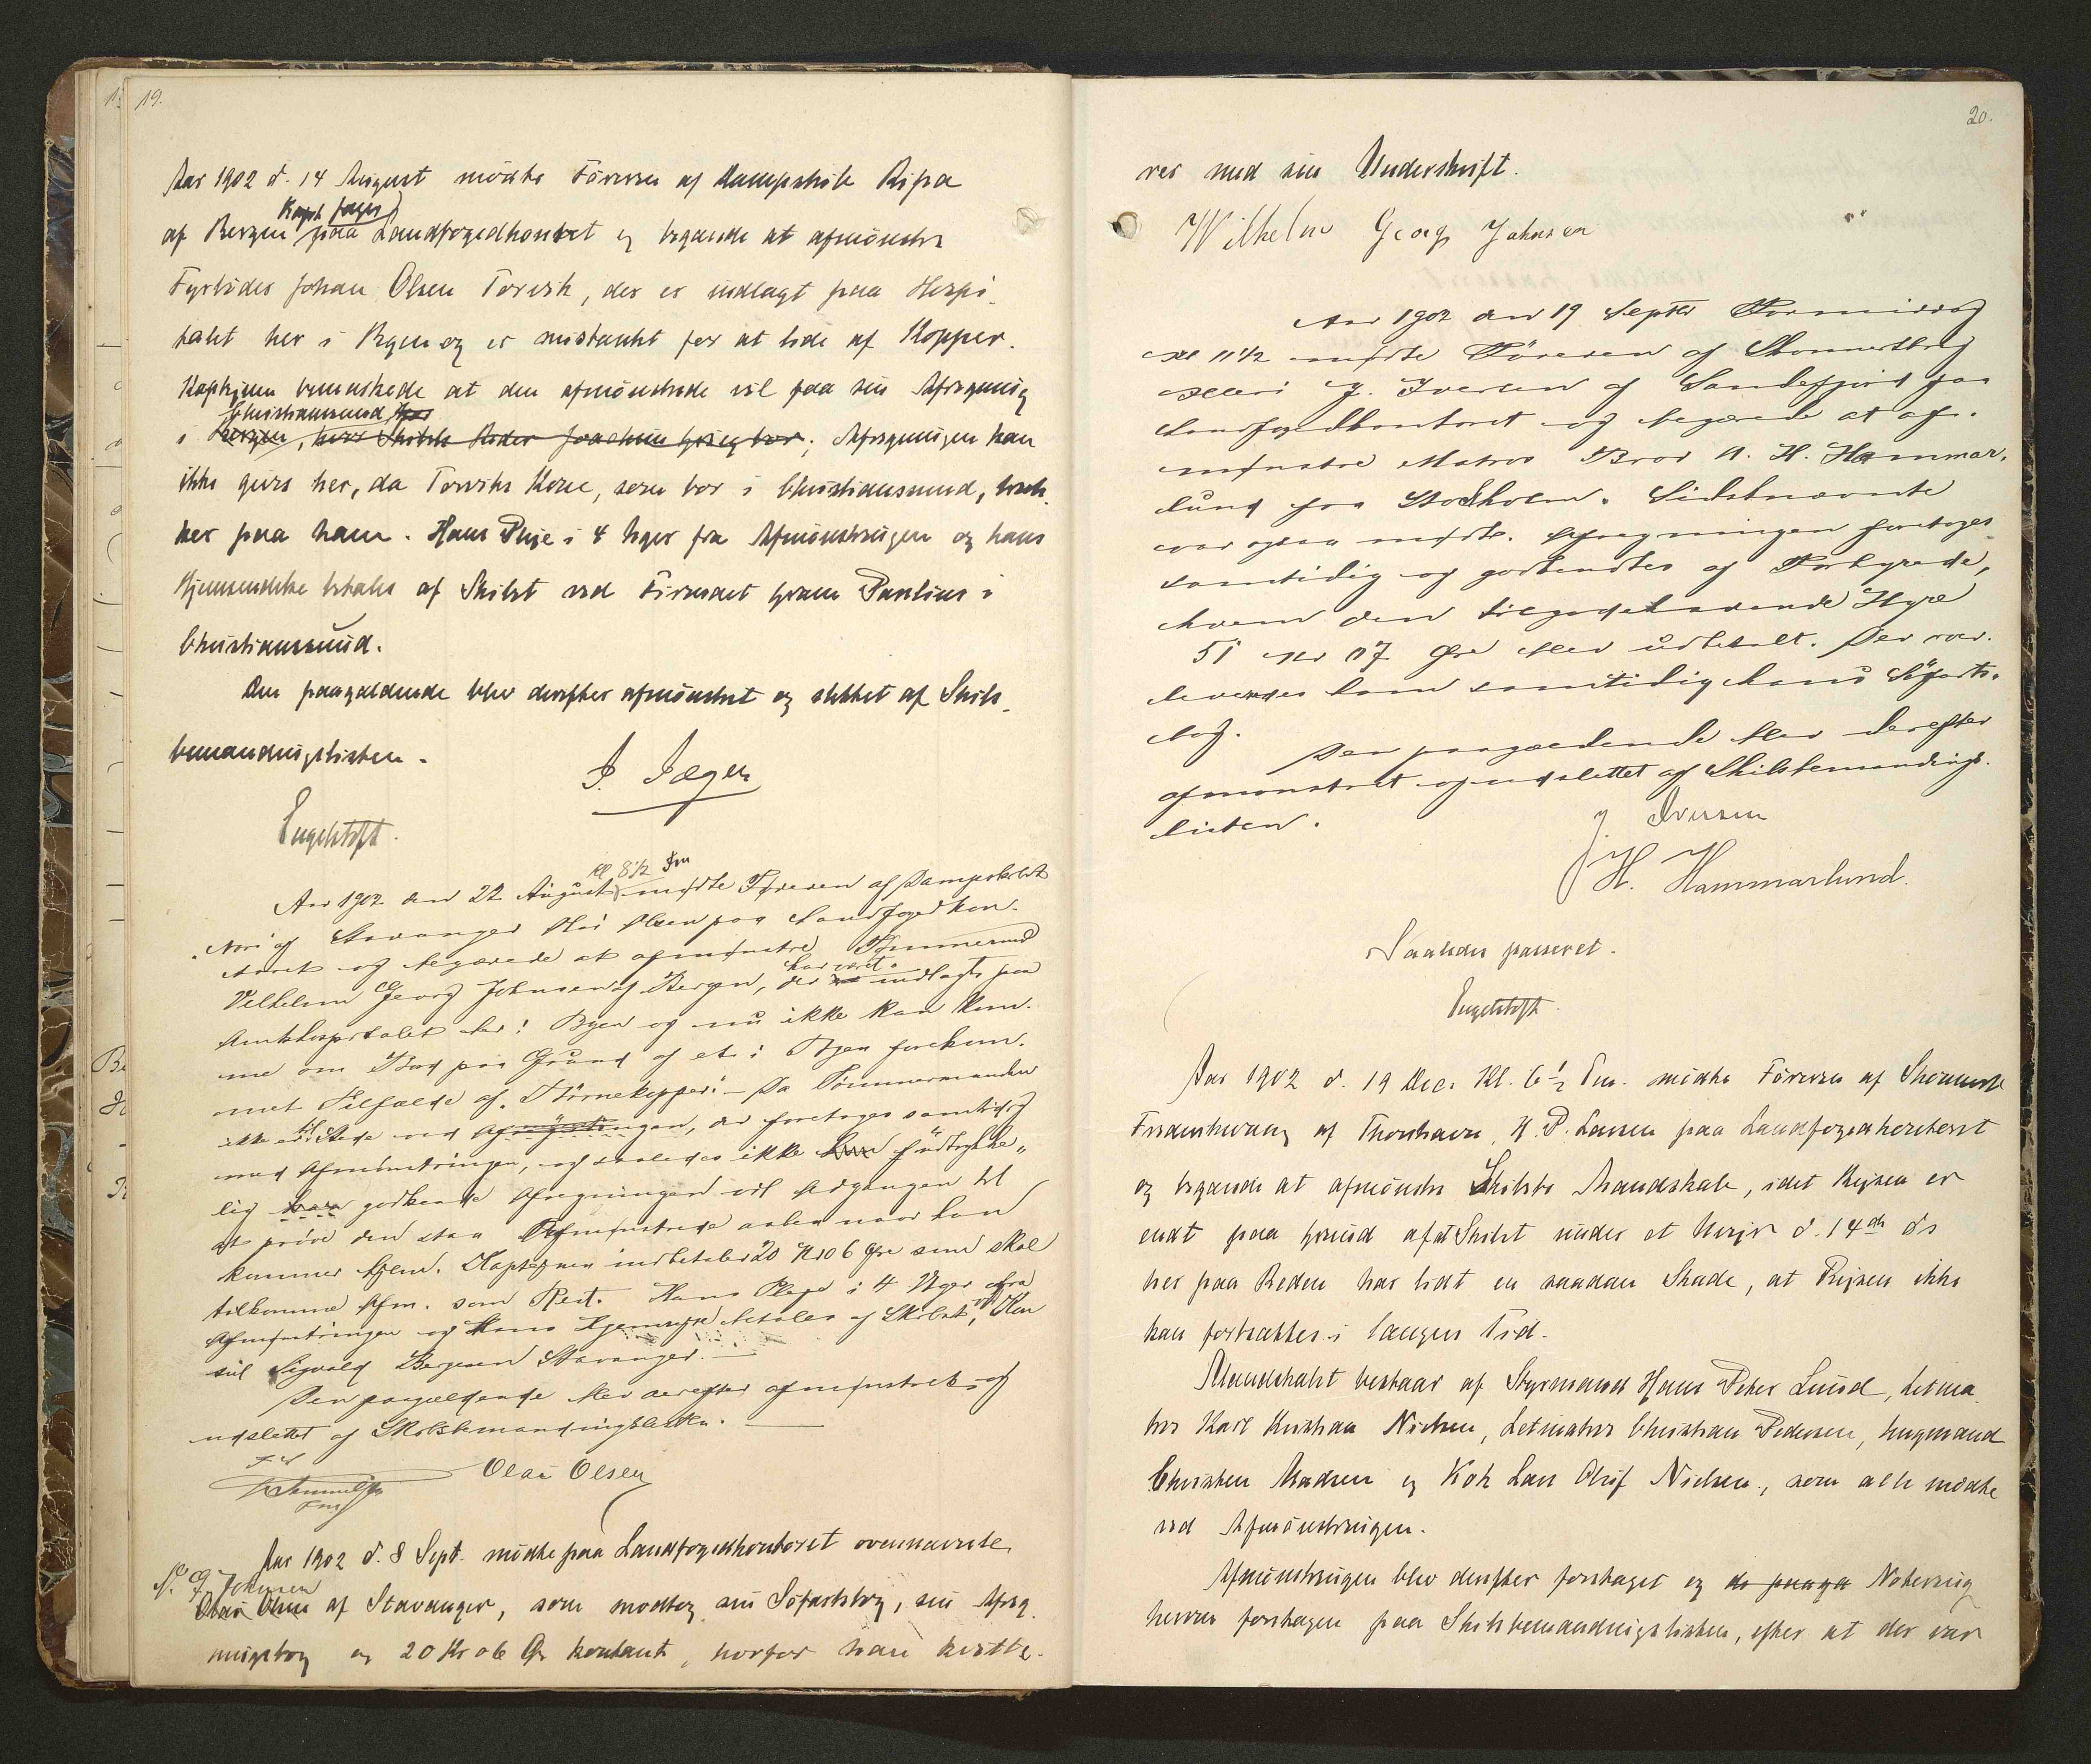 19.
Aar 1902 d. 14 August mødte Föreren af Dampskib Ripa
Kapt. Jæger
af Bergen paa Landfogedkontoret og begærede at afmönstre
Fyrböder Johan Olsen Torvik, der er indlagt paa Hospi-
talet her i Byen og er mistænkt for at lide af Kopper.
Kaptejnen bemærkede at den afmönstrede vil faa sin Afregning
Christianssund
i Bergen, hvor Skibets Reder Joachim Grieg bor; Afregningen kan
ikke gives her, da Torviks Kone, som bor i Christianssund, træk-
ker paa ham. Hans Pleje i 4 Uger fra Afmönstringen og hans
Hjemsendelse betales af Skibet ved Firmaet Paulsen i
Christianssund.
Den paagældende blev derefter afmönstret og slettet af Skibs-
bemandingslisten.
J. Jæger
Engelstoft.
Kl 8 1/2 Fm
Aar 1902 den 22 August mødte Føreren af Dampskibet
Nori af Stavanger Olai Olsen paa Landfogedkon-
toret og begærede at afmønstre Tømmermand
har været
Vilhelm Georg Johnsen af Bergen, der er indlagt paa
Amtshospitalet her i Byen og nu ikke kan kom-
me om Bord paa Grund af et i Byen forekom-
met Tilfælde af "Börnekopper". Da Tömmermanden
ikke er til Stede ved Afregningen, der foretages samtidig
med Afmönstringen, og saaledes ikke kan udtrykke-
lig godkende Afregningen vil Adgangen til
at pröve den staa Afmønstrede aaben naar han
kommer hjem. Kaptejnen indbetaler 20 Kr 06 Øre som skal
tilkomme Afm. som Rest. Hans Pleje i 4 Uger fra
Afmønstringen og Hans Hjemrejse betales af Skibet, ved Kon
sul Sigvald Bergesen Stavanger.
Den paagældende blev derefter afmønstret og
udslettet af Skibsbemandingslisten.
Olai Olsen
Aar 1902 d. 8 Sept. mödte paa Landfogedkontoret ovennævnte
V. G. Johnsen
Olai Olsen af Stavanger, som modtog sin Söfartsbog, sin Afreg-
ningsbog og 20 Kr 06 Øre kontant, hvorfor han kvitte-
20.
rer med sin Underskrift.
Wilhelm Georg Johnsen
Aar 1902 den 19 Septbr Formiddag
Kl 11 1/2 mødte Föreren af Skonnertbrig
J. Iversen af Sandefjord paa
Landfogedkontoret og begærede at af-
mønstre Matros Bror A. H. Hammar-
lund fra Stockholm. Sidstnævnte
var ogsaa mødt. Afregningen foretoges
samtidig og godkendtes af Forhyrede,
hvem den tilgodehavende Hyre
51 Kr 17 Øre blev udbetalt. Der over-
leveredes ham samtidig hans Söfarts-
bog.
Den paagældende blev derefter
afmønstret og udslettet af Skibsbemandings-
listen.
J. Iversen
H. Hammarlund.
Saaledes passeret.
Engelstoft.
Aar 1902 d. 19 Dec. Kl. 6 1/2 Em. mödte Föreren af Skonnert
Fredensborg af Thorshavn, H. P. Larsen paa Landfogedkontoret
og begærede at afmönstre Skibets Mandskab, idet Rejsen er
endt paa Grund af at Skibet under et Uvejr d. 14de ds
her paa Reden har lidt en saadan Skade, at Rejsen ikke
kan fortsættes i længere Tid.
Mandskabet bestaar af Styrmand Hans Peter Lund, Letma-
tros Karl Kristian Nielsen, Letmatros Christian Pedersen, Ungmand
Christen Madsen og Kok Lars Oluf Nielsen, som alle mødte
ved Afmönstringen.
Afmönstringen blev derefter foretaget og Notering
herom foretagen paa Skibsbemandingslisten, efter at der var